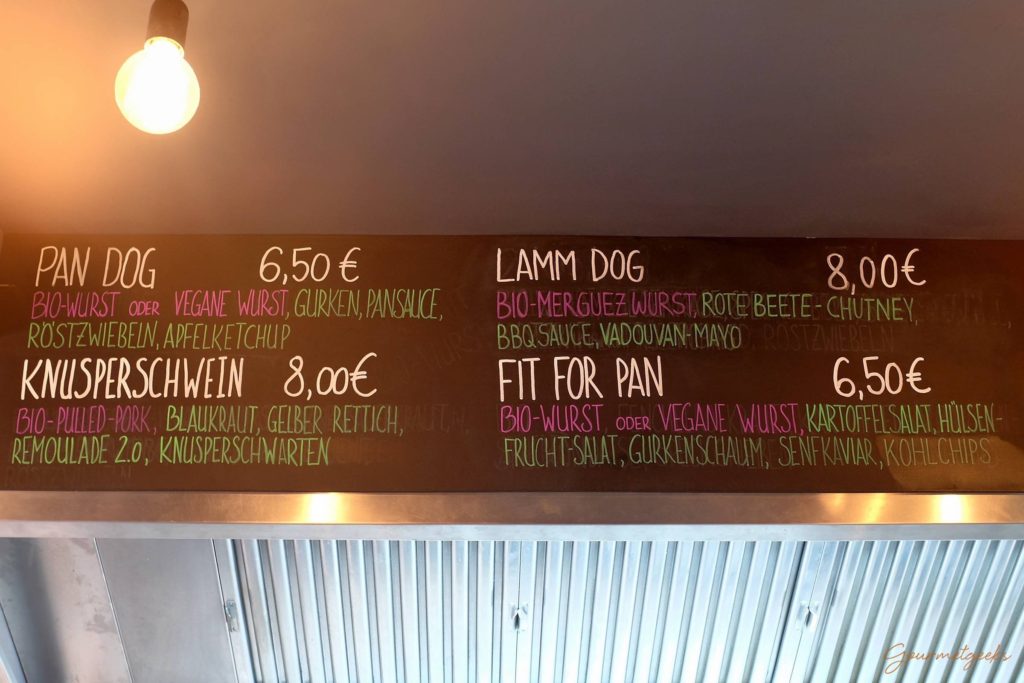 PAN DOG 6,50 €
BIO-WURST ODER VEGANE WURST, GURKEN, PANSAUCE,
RÖSTZWIEBELN, APFELKETCHUP
KNUSPERSCHWEIN 8,00 €
BIO-PULLED-PORK, BLAUKRAUT, GELBER RETTICH,
REMOULADE 2.0, KNUSPERSCHWARTEN
LAMM DOG 8,00€
BIO-MERGUEZ WURST, ROTE BEETE-CHUTNEY,
BBQ SAUCE, VADOUVAN-MAYO
FIT FOR PAN 6,50€
BIO-WURST ODER VEGANE WURST, KARTOFFELSALAT, HÜLSEN-
FRUCHT-SALAT, GURKENSCHAUM, SENFKAVIAR, KOHLCHIPS
Gourmetgeeks